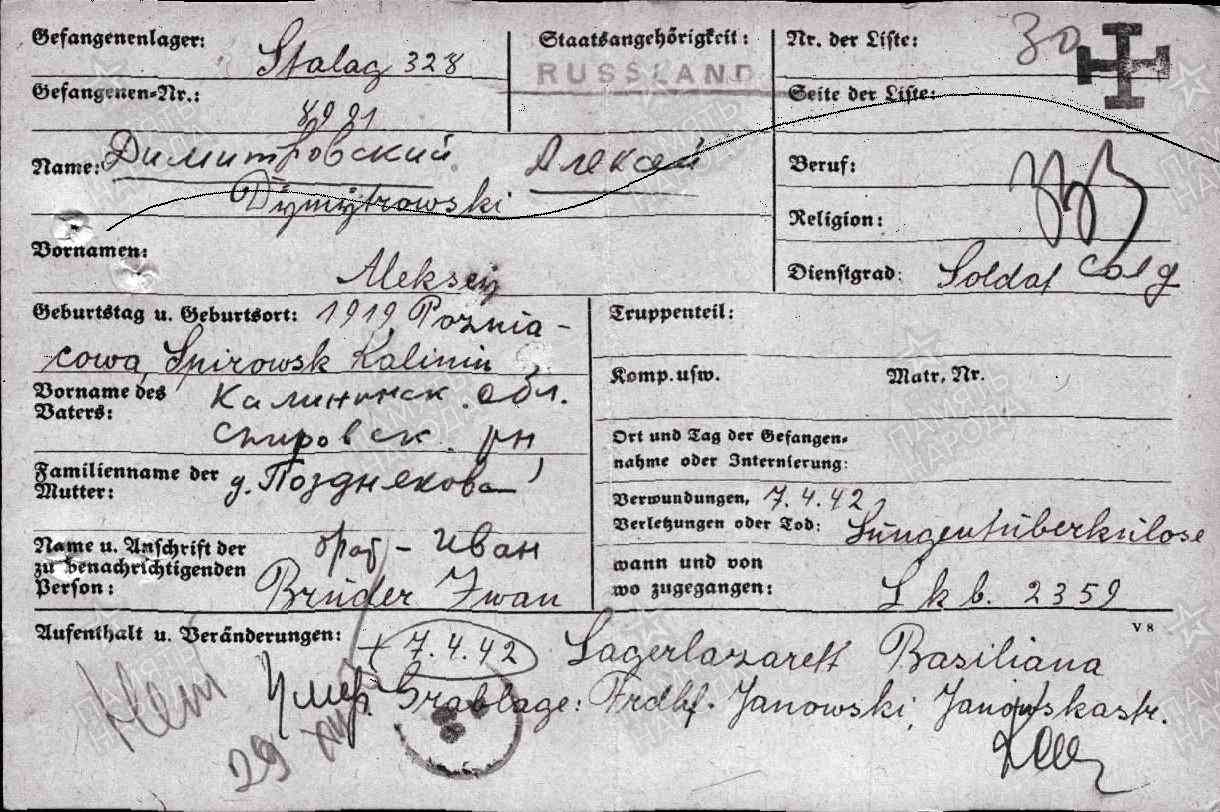 Gefangenenlager: Stalag 328
Staatsangehörigkeit: RUSSLAND
Nr. der Liste: 30
Gefangenen-Nr.: 8991
Seite der Liste:
Name: Димитровский Алексей
Dymytrowski
Beruf:
Religion:
Vornamen: Aleksey
Dienstgrad: Soldat солд
Geburtstag u. Geburtsort: 1919, Poznia-
cowa, Spirowsk Kalinin
Truppenteil:
Komp. usw. Matr. Nr.
Vorname des Vaters: Калининск. обл.
Спировск. рн
Ort und Tag der Gefangen-
nahme oder Internierung:
Familienname der Mutter: д. Позднякова
Verwundungen, 7.4.42
Verletzungen oder Tod: Lungentuberkulose
Name u. Anschrift der
zu benachrichtigenden
Person:
брат - Иван
Bruder Iwan
wann und von
wo zugegangen: Lkb. 2359
V 8
Aufenthalt u. Veränderungen: + 7.4.42 Lagerlazarett Basiliana
Умер. Grablage: Frdhf. Janowski, Janowskastr.
29
ПАМЯТЬ НАРОДА